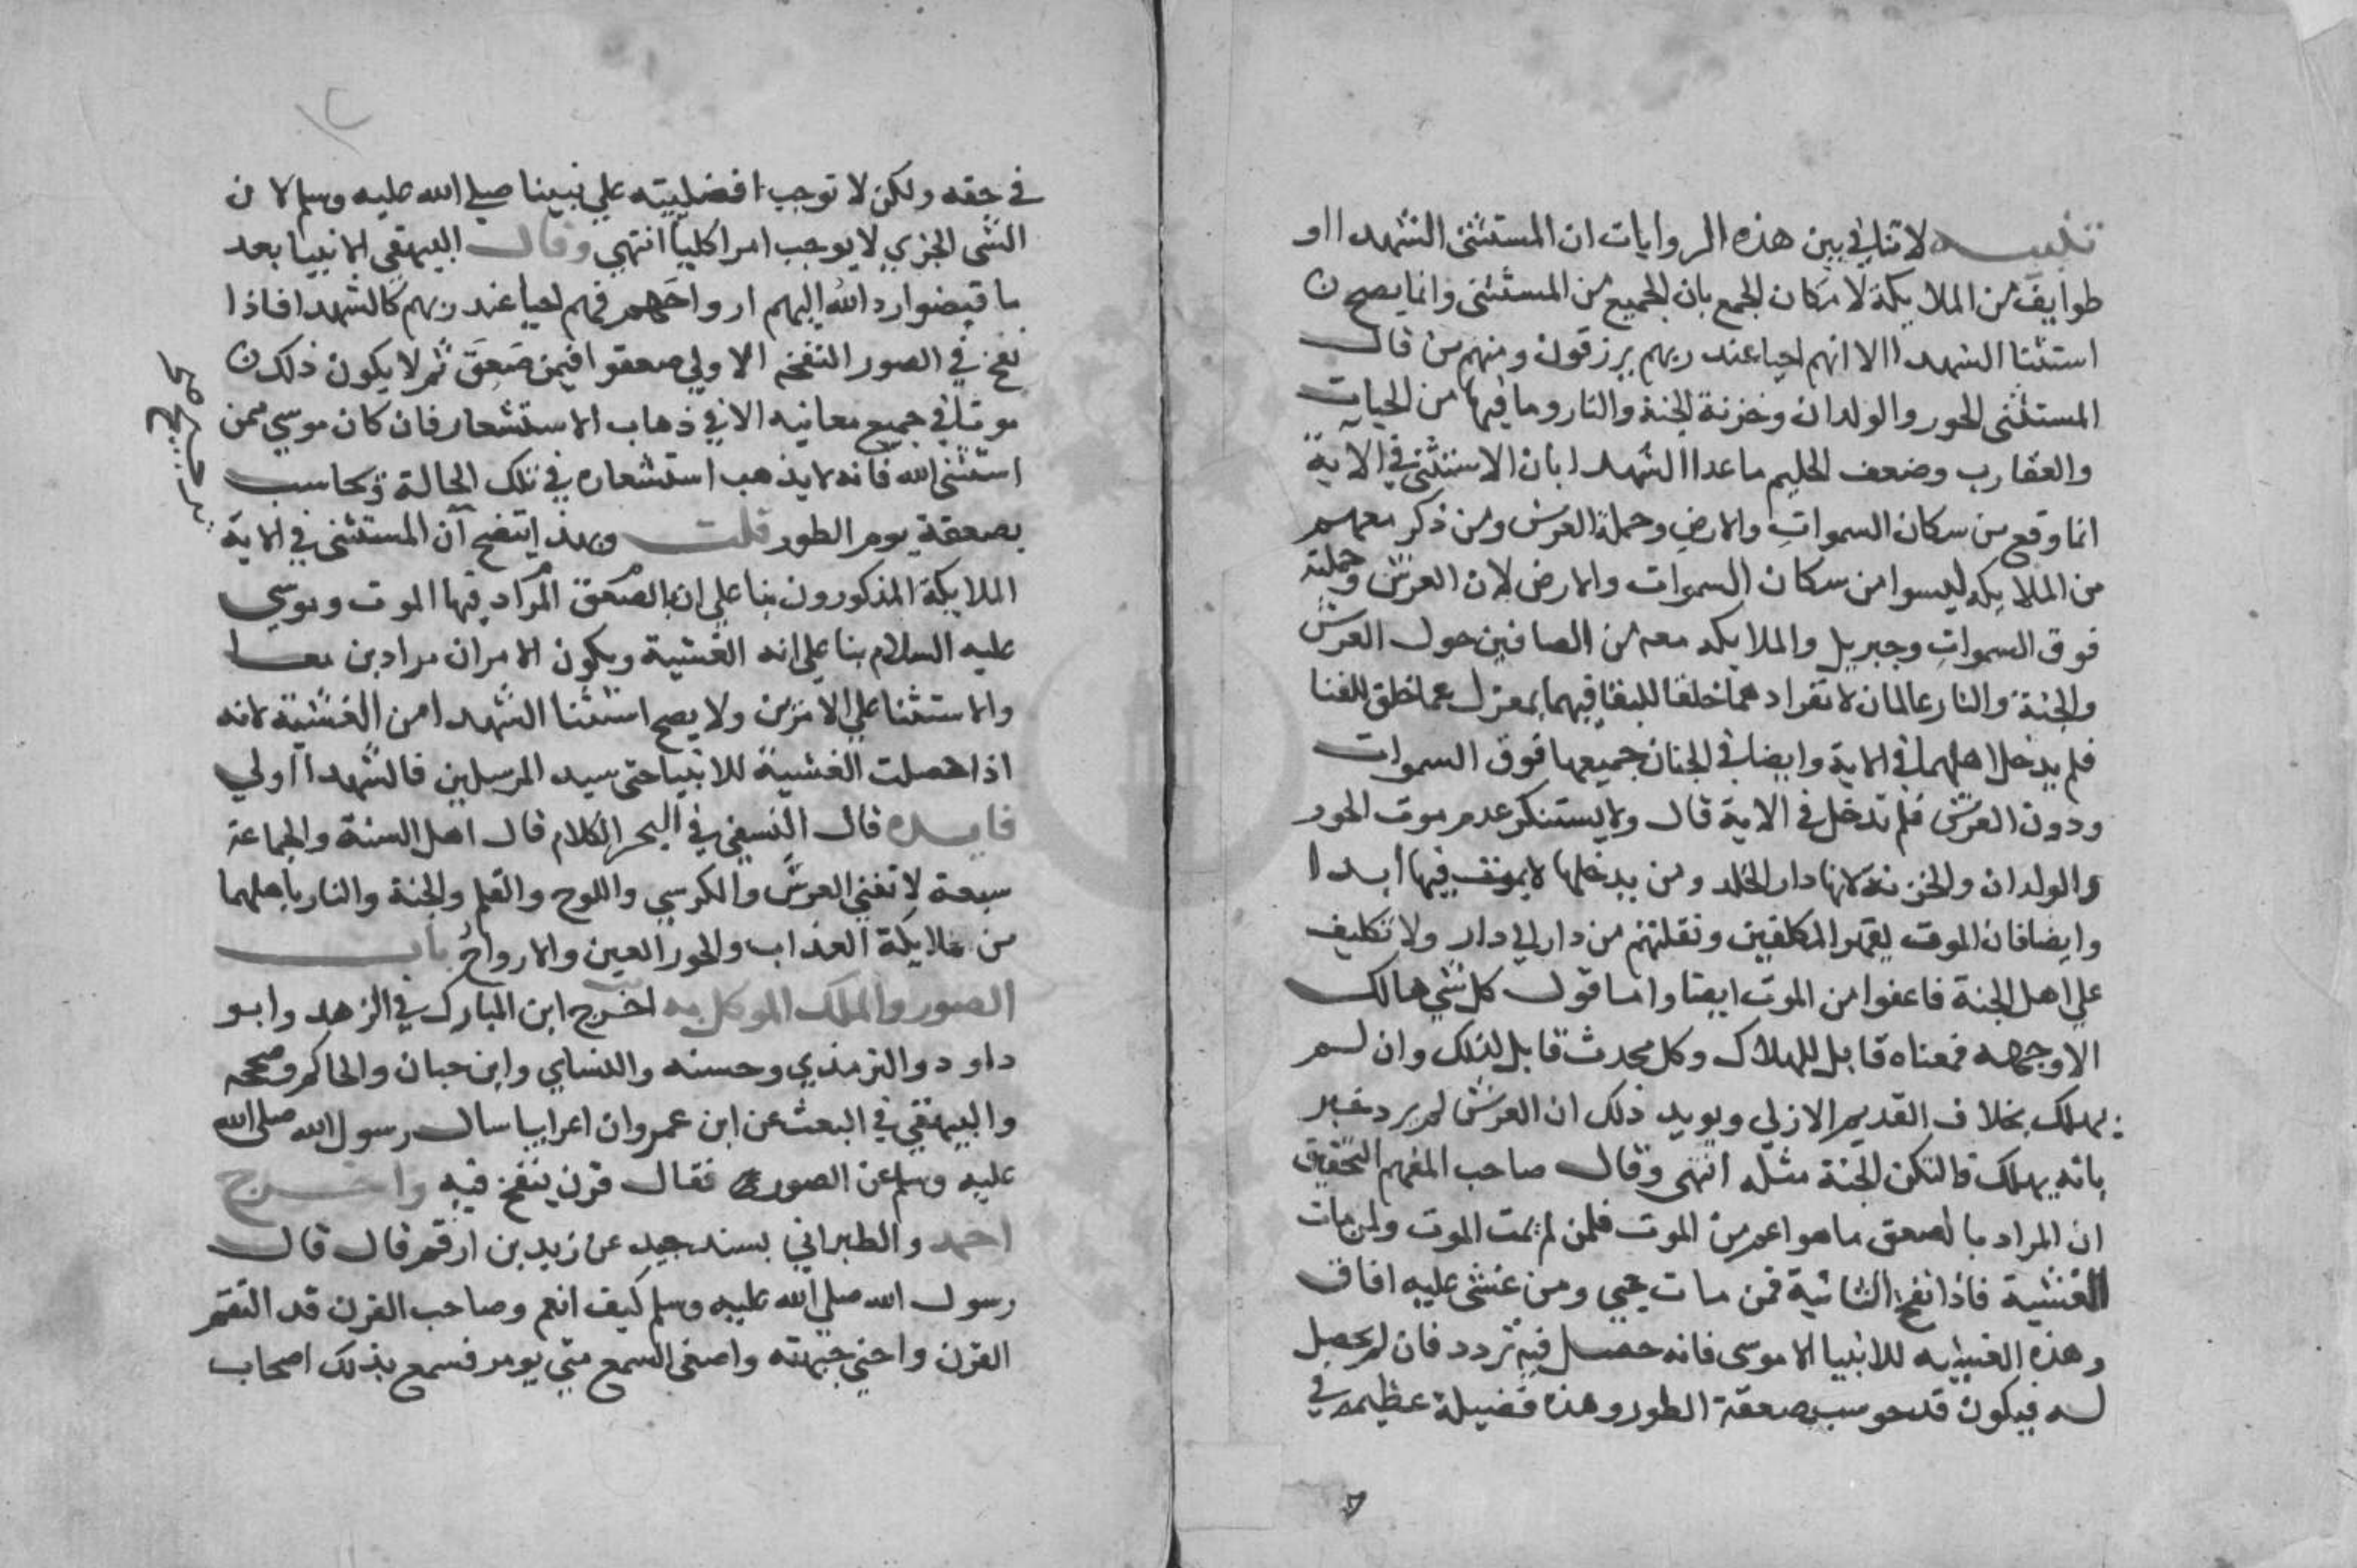 تنبيه لا تنافي بين هذه الروايات ان المستثنى الشهدا او
طوايف من الملايكة لامكان الجمع بان الجميع من المستثنى وانما يصح ن
استثنا الشهدا الا انهم احيا عند ربهم يرزقون ومنهم من قال
المستثنى الحور والولدان وخزنة الجنة والنار وما فيها من الحيات
والعقارب وضعف الحليم ماعدا الشهدا بان الاستثنى في الاية
انما وقع من سكان السموات والارض وحملة العرش ومن ذكر معهم
من الملايكه ليسوا من سكان السموات والارض لان العرش وحملته
فوق السموات وجبريل والملايكه معه من الصافين حول العرش
والجنة والنار عالمان لانفرادهما خلقا للبقا فهما بمعزل عما خلق للفنا
فلم يدخل اهلهما في الاية وايضا في الجنان جميعها فوق السموات
ودون العرش فلم تدخل في الاية قال ولا يستنكر عدم موت الحور
والولدان والخزنة لانها دار الخلد ومن يدخلها لا يموت فيها ابدا
وايضا فان الموت لقهر المكلفين ونقلتهم من دار الي دار ولا تكليف
علي اهل الجنة فاعفوا من الموت ايضا واما قول كل شي هالك
الا وجهه فمعناه قابل للهلاك وكل محدث قابل لذلك وان لم
يهلك بخلاف القديم الازلي ويويد ذلك ان العرش لم يرد خبر
بانه يهلك فالتكن الجنة مثله انتهى وقال صاحب المفهم التحقيق
ان المراد بالصعق ما هو اعم من الموت فلمن لم يمت الموت ولمن مات
الغشية فاذا نفخ الثانية فمن مات حيي ومن غشى عليه افاق
وهذه الغشيه للانبيا الا موسى فانه حصل فيه تردد فان لم يحصل
له فيكون قد حوسب بصعقة الطور وهذه فضيلة عظيمه في
في حقه ولكن لا توجب افضليته علي نبينا صلى الله عليه وسلم لان
الشى الجزي لا يوجب امرا كليا انتهي وقال البيهقي الانبيا بعد
ما قبضوا رد الله اليهم ارواحهم فهم احيا عند ربهم كالشهدا فاذا
نفخ في الصور النفخه الاولي صعقوا فيمن صعق ثم لا يكون ذلك ن
موتا في جميع معانيه الا في ذهاب الاستشعار فان كان موسي ممن
استثنى الله فانه لا يذهب استشعاره في تلك الحالة ويحاسب
بصعقة يوم الطور قلت وبهذ ايتضح ان المستثنى في الاية
الملايكة المذكورون بنا علي ان الصعق المراد فيها الموت وموسي
عليه السلام بنا علي انه الغشية ويكون الامران مرادين معا
والاستثنا علي الامرين ولا يصح استثنا الشهدا من الغشية لانه
اذا حصلت الغشية للانبيا حتى سيد المرسلين فالشهدا اولي
فايده قال النسفي في البحر الكلام قال اهل السنة والجماعة
سبعة لا تفني العرش والكرسي واللوح والقلم والجنة والنار باهلهما
من ملايكة العذاب والحور العين والارواح باب
الصور والملك الموكل به اخرج ابن المبارك في الزهد وابو
داود والترمذي وحسنه والنساي وابن حبان والحاكم وصححه
والبيهقي في البعث عن ابن عمرو ان اعرابيا سال رسول الله صلى الله
عليه وسلم عن الصور فقال قرن ينفخ فيه واخرج
احمد والطبراني بسند جيد عن زيد بن ارقم قال قال
رسول الله صلي الله عليه وسلم كيف انعم وصاحب القرن قد التقم
القرن واحني جبهته واصغى السمع متي يومر فسمع بذلك اصحاب